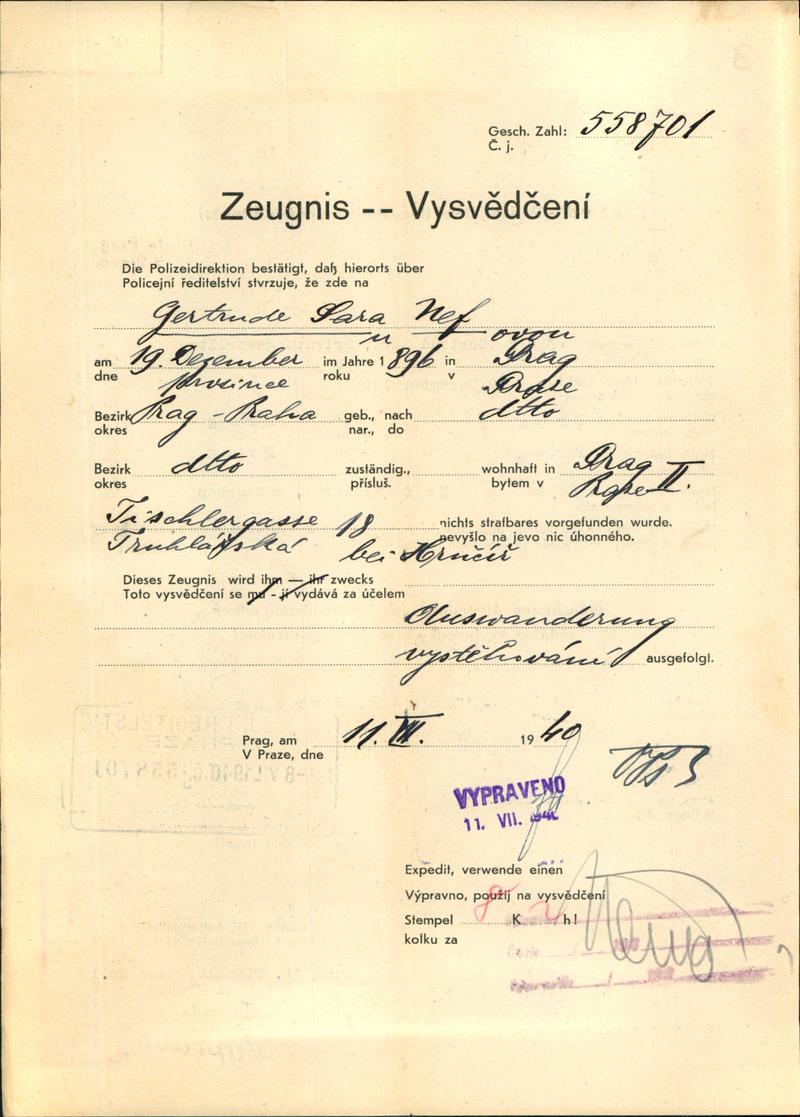 Gesch. Zahl: 558701
Č. j.
Zeugnis -- Vysvědčení
Die Polizeidirektion bestätigt, daß hierorts über
Policejní ředitelství stvrzuje, že zde na
Gertrude Sara Nef
u ovou
am 19. Dezember im Jahre 1896 in Prag
dne prosince roku v Praze
Bezirk Prag - Praha geb., nach dtto
okres nar., do
Bezirk dtto zuständig., wohnhaft in Prag II.
okres přísluš. bytem v Praze
Tischlergasse 18 nichts strafbares vorgefunden wurde.
Truhlářská bei Hrnčíř nevyšlo na jevo nic úhonného.
Dieses Zeugnis wird ihm — ihr zwecks
Toto vysvědčení se mu - jí vydává za účelem
Auswanderung
vystěhování ausgefolgt.
Prag, am 11. VII. 1940
V Praze, dne
VYPRAVENO
11. VII.
Expedit, verwende einen
Výpravno, použij na vysvědčení
Stempel 8 K h!
kolku za